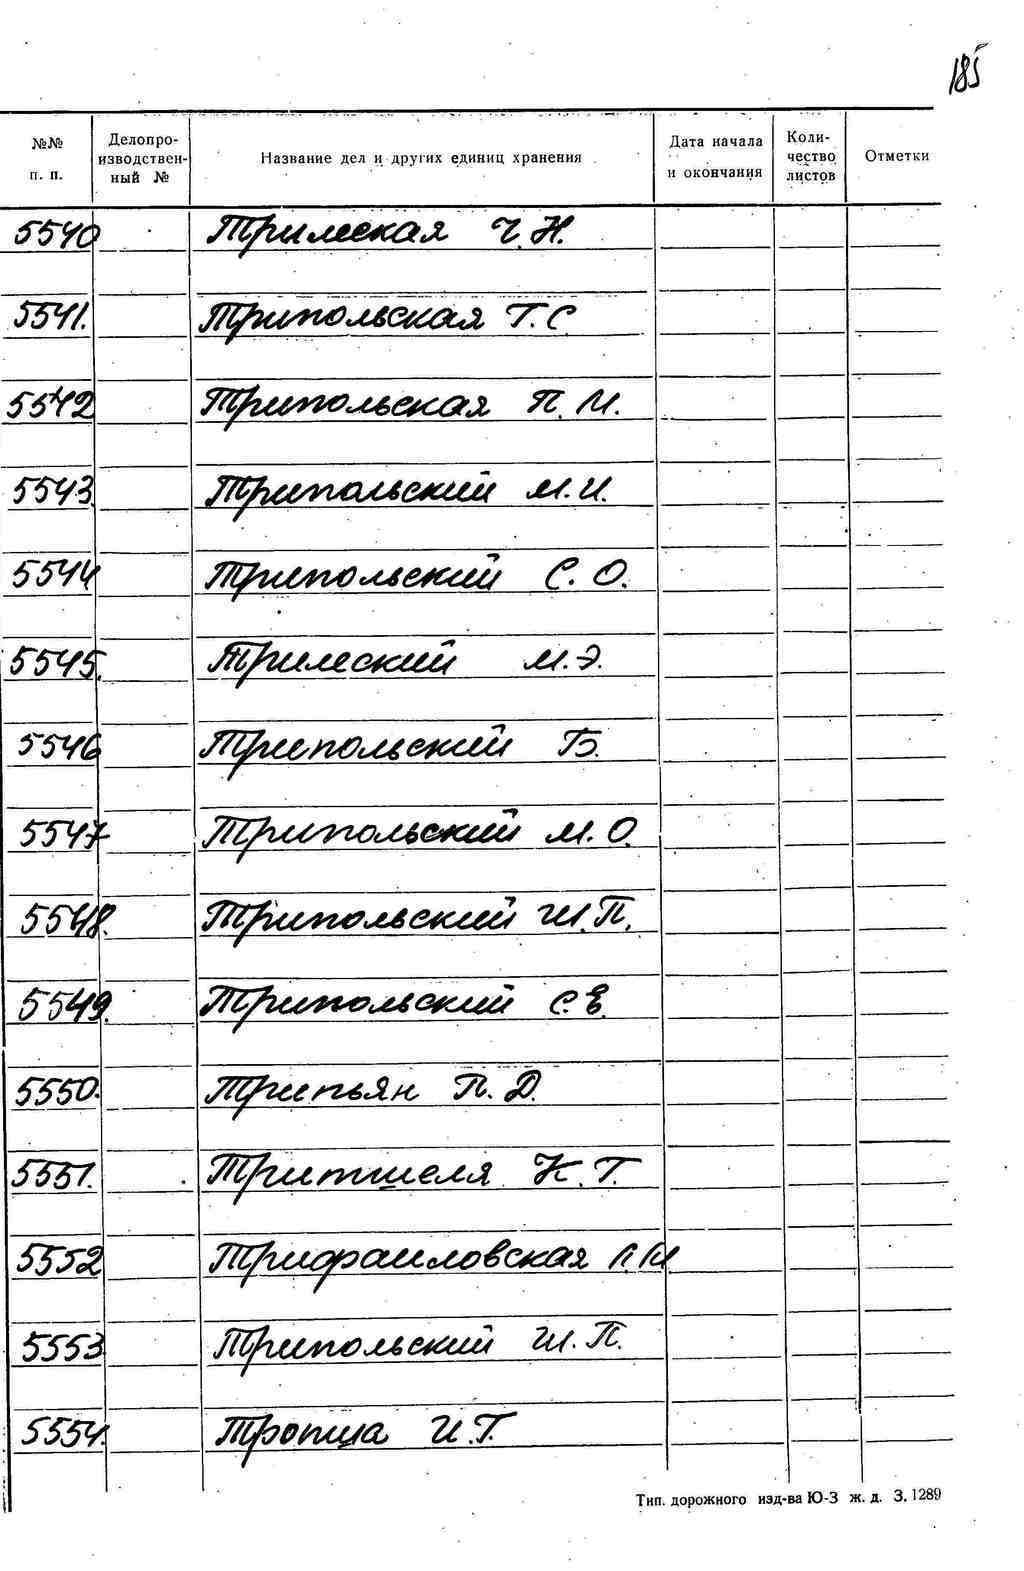 185
№№ п. п. Делопроизводственный № Название дел и других единиц хранения Дата начала и окончания Количество листов Отметки
5540 Трилеская Ч. Н.
5541. Трипольская Т. С.
5542 Трипольская П. М.
5543 Трипольский М. И.
5544 Трипольский С. О.
5545. Трилеский М. Э.
5546 Трипольский Б.
5547 Трипольский М. О.
5548. Трипольский Ш. П.
5549. Трипольский С. Е.
5550. Трипьян П. Д.
5551. К. Т.
5552 Трифаиловская
5553 Трипольский Ш. П.
5554. И. Т.
Тип. дорожного изд-ва Ю-З ж. д. З. 1289